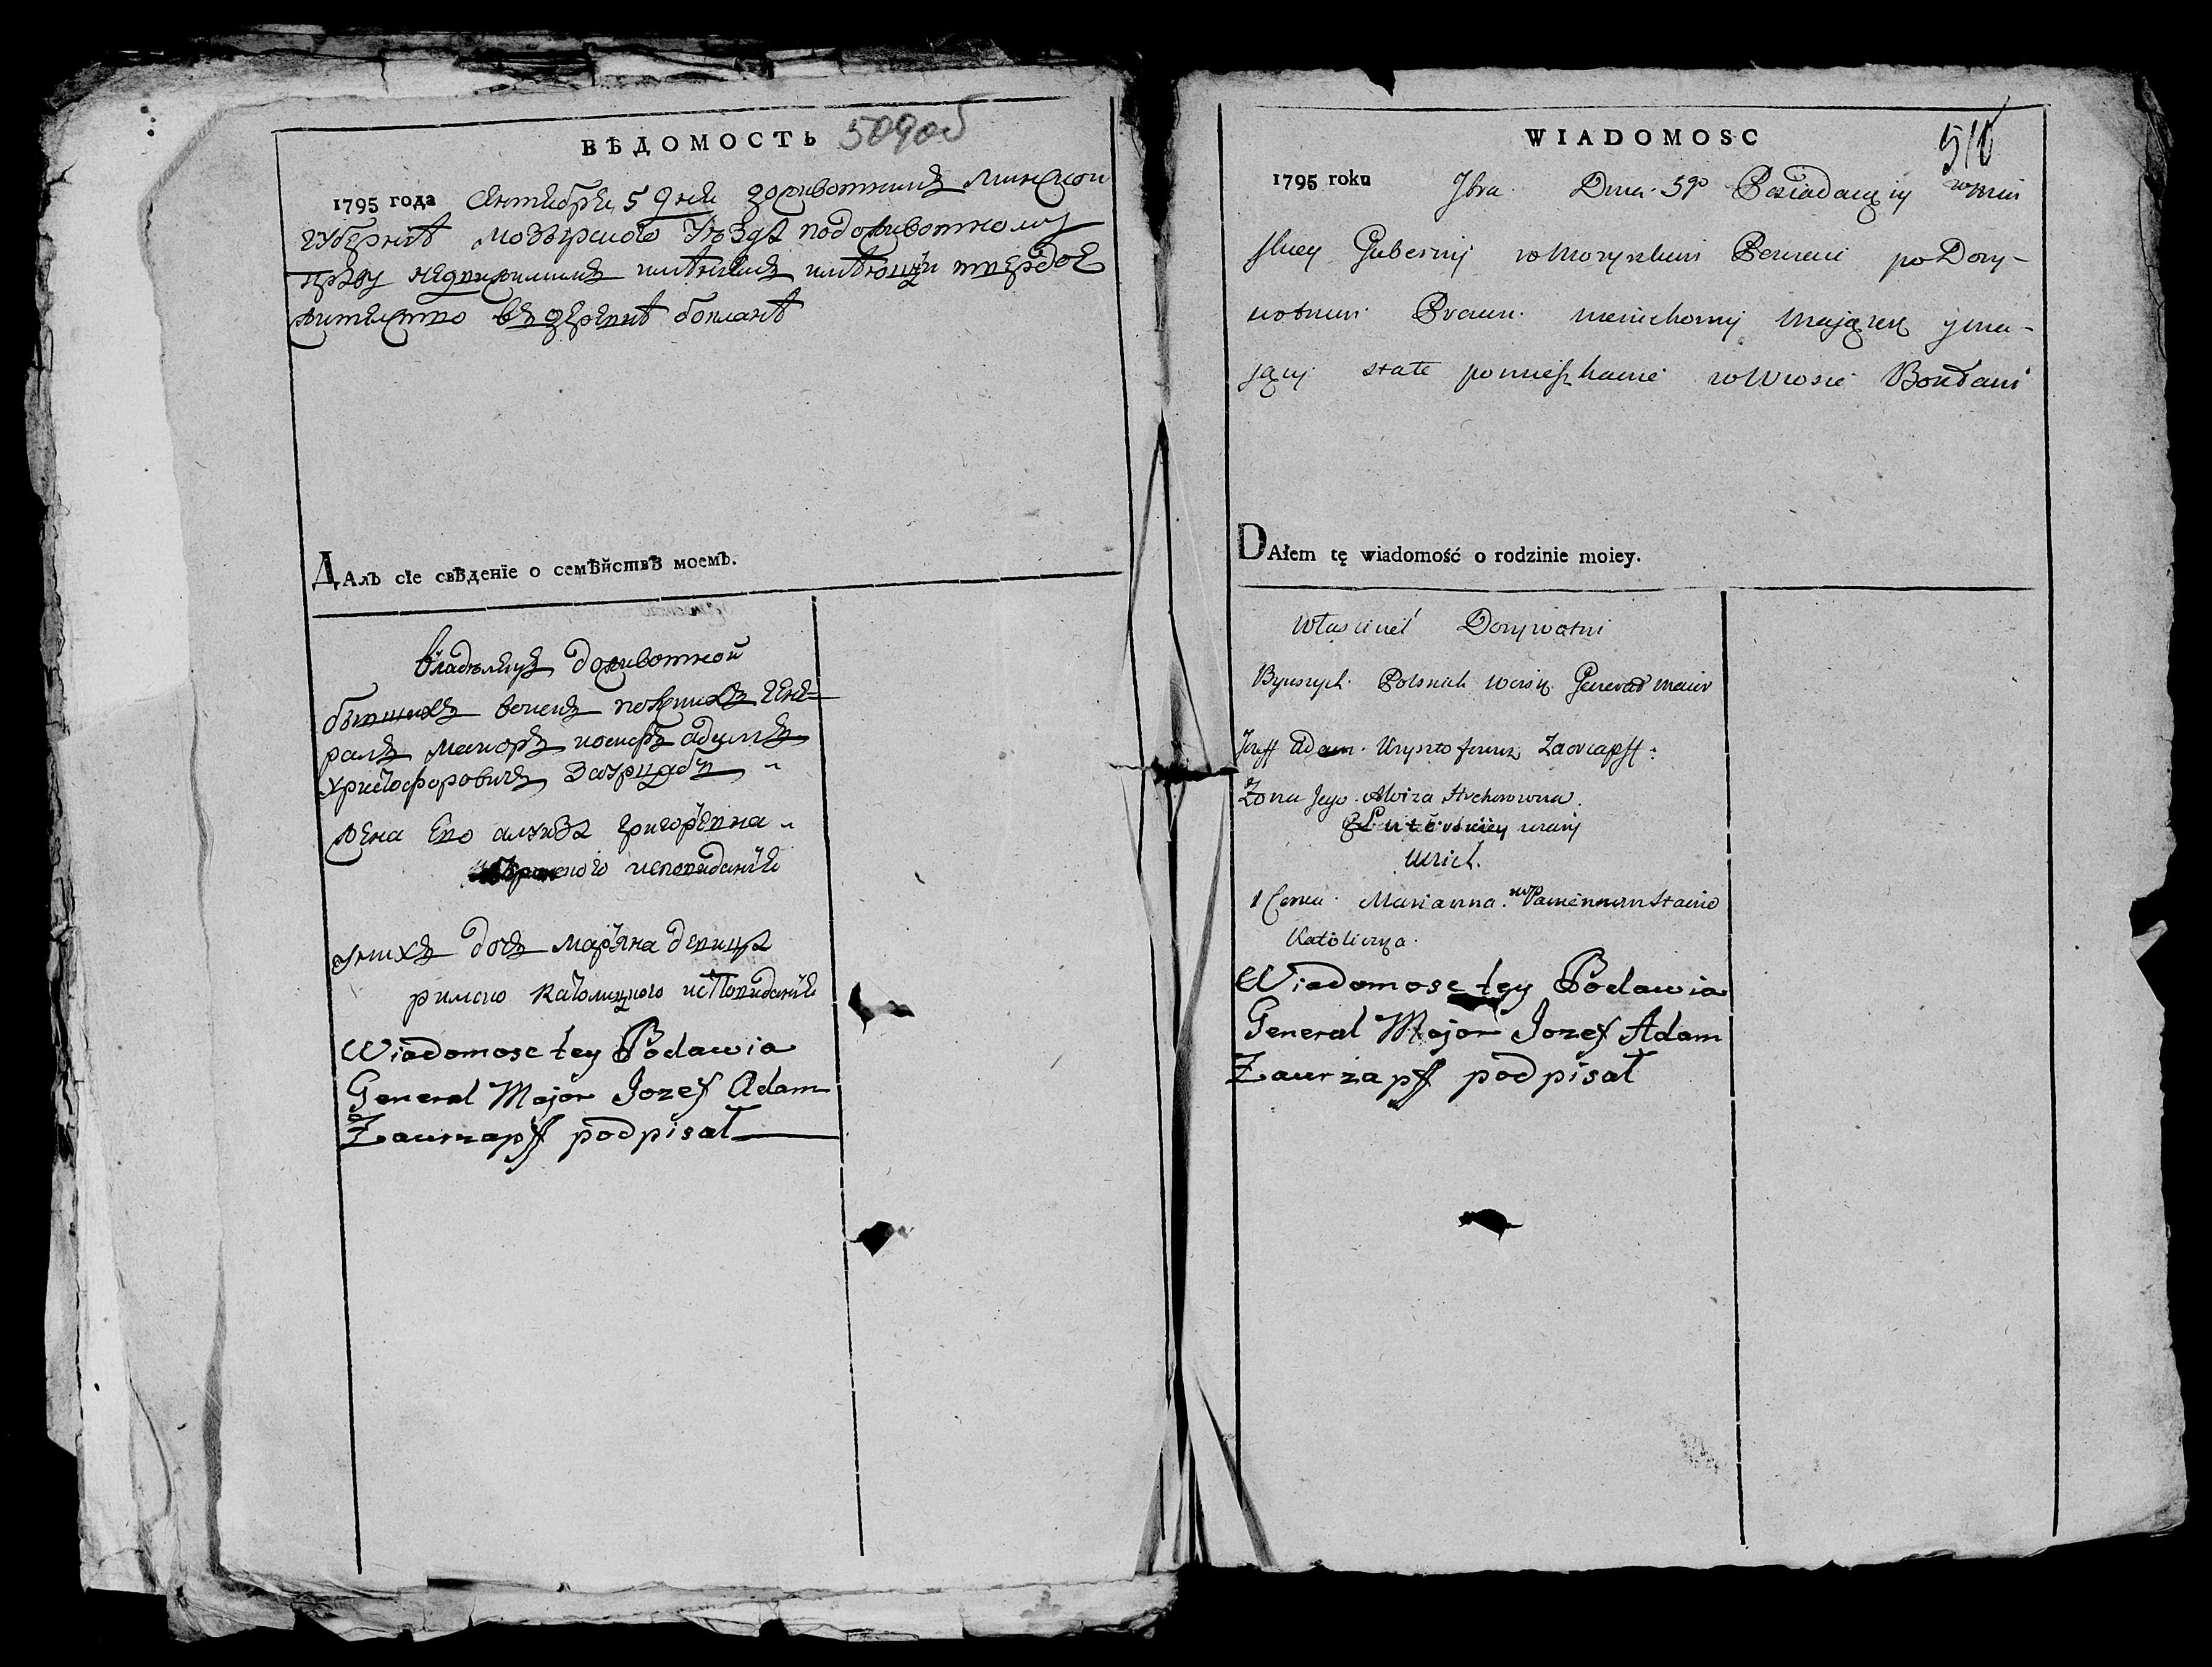 ВѢДОМОСТЬ 509 об
1795 года Сентебря 5 дня доживотнимъ Минской
губернѣ Мозырского уѣзда по доживотному
праву недвижимимъ имѣниемъ имѣющи твердое
жителство въ деревнѣ
ДАлъ сіе свѣденіе о семѣйствѣ моемъ.
владѣлецъ доживотной
бывшихъ воискъ полскихъ гене=
ралъ маиоръ иосифъ адамъ
христофоровичъ Заурцапфъ
жена его алуиза григорьевна
исповиданія
у нихъ дочъ марьяна девица
римско католицкого исповиданія
Wiadomosc tey Podawia
General Major Jozef Adam
Zaurzapff podpisał
WIADOMOSC 510
1795 roku 7bra Dnia 5go Posiadaiący w Miń
skiey Gubernij w Mozyrskim Powieci po Dozy-
wotnim Prawu nieruchomy Mająteq y ma-
jący stałe pomieszkanie w Wiosce
DAłem tę wiadomość o rodzinie moiey.
Własciciel Dozywotni
Bywszych Polskich Woisk General maior
Jozeff Adam Krysztoforowicz Zaorcapff:
Zona Jego Aloiza
u nich
1 Corka Marianna w Panienskim Stanie
Katoliczka
Wiadomosc tey Podawia
General Major Jozef Adam
Zaurzapff podpisał